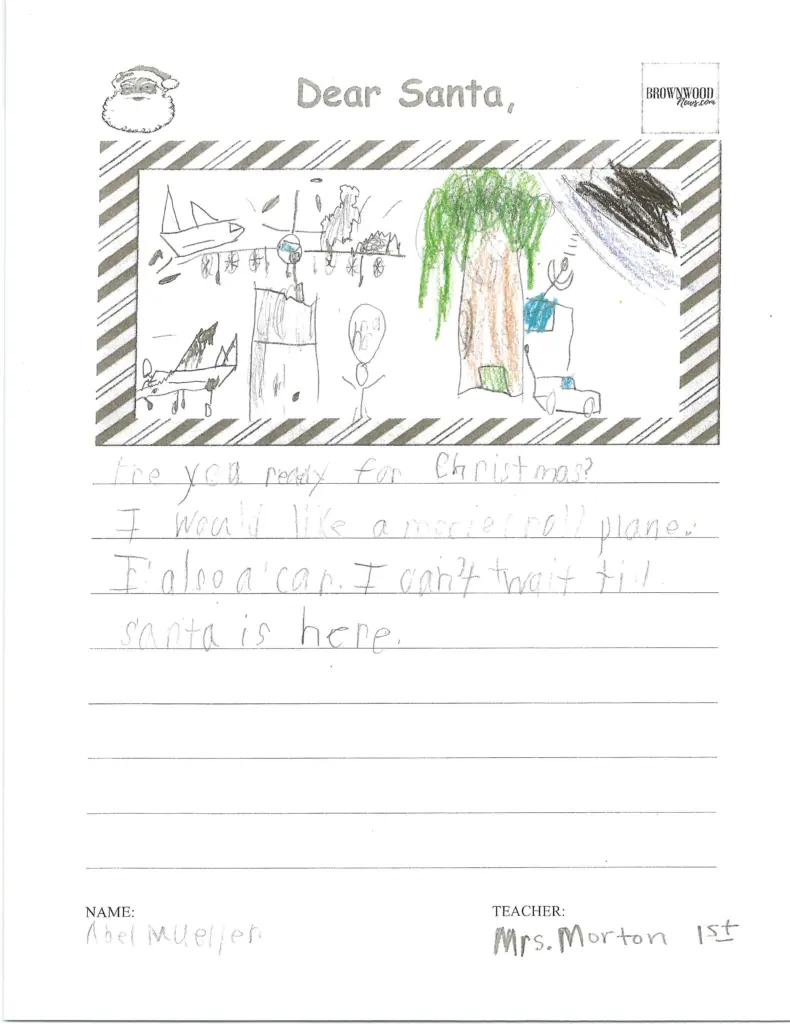 Dear Santa,
BROWNWOOD
News.com
Are you ready for Christmas?
I would like a plane.
I also a car. I can't wait till
santa is here.
NAME:
TEACHER:
Abel Mueller
Mrs. Morton 1st